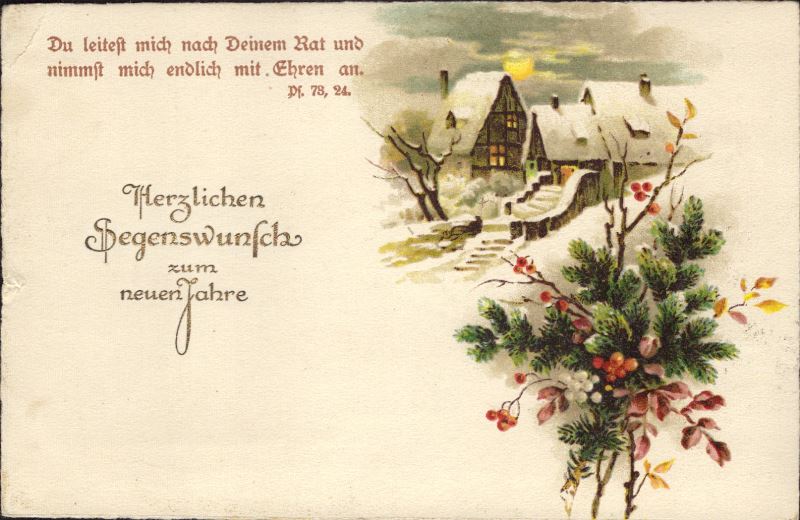 Du leitest mich nach Deinem Rat und
nimmst mich endlich mit Ehren an.
Ps. 73, 24.
Herzlichen
Segenswunsch
zum
neuen Jahre